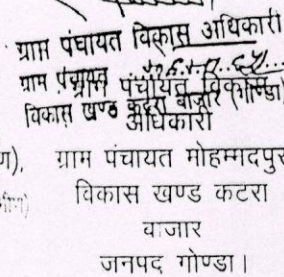 ग्राम पंचायत विकास अधिकारी
ग्राम पंचायत
ग्राम पंचायत विकास
विकास खण्ड कटरा बाजार (गोण्डा)
अधिकारी
ग्राम पंचायत मोहम्मदपुर
विकास खण्ड कटरा
बाजार
जनपद गोण्डा।